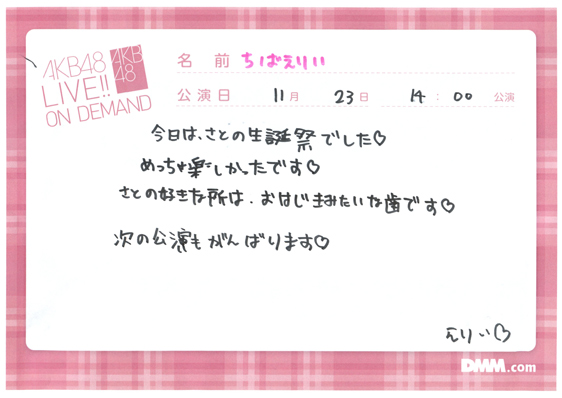 AKB48
LIVE!!
ON DEMAND
AKB
48
名 前 ちばえりい
公演日 11月 23日 14:00 公演
今日は、さとの生誕祭でした♡
めっちゃ楽しかったです♡
さとの好きな所は、おはじきみたいな歯です♡
次の公演もがんばります♡
えりい♡
DMM.com